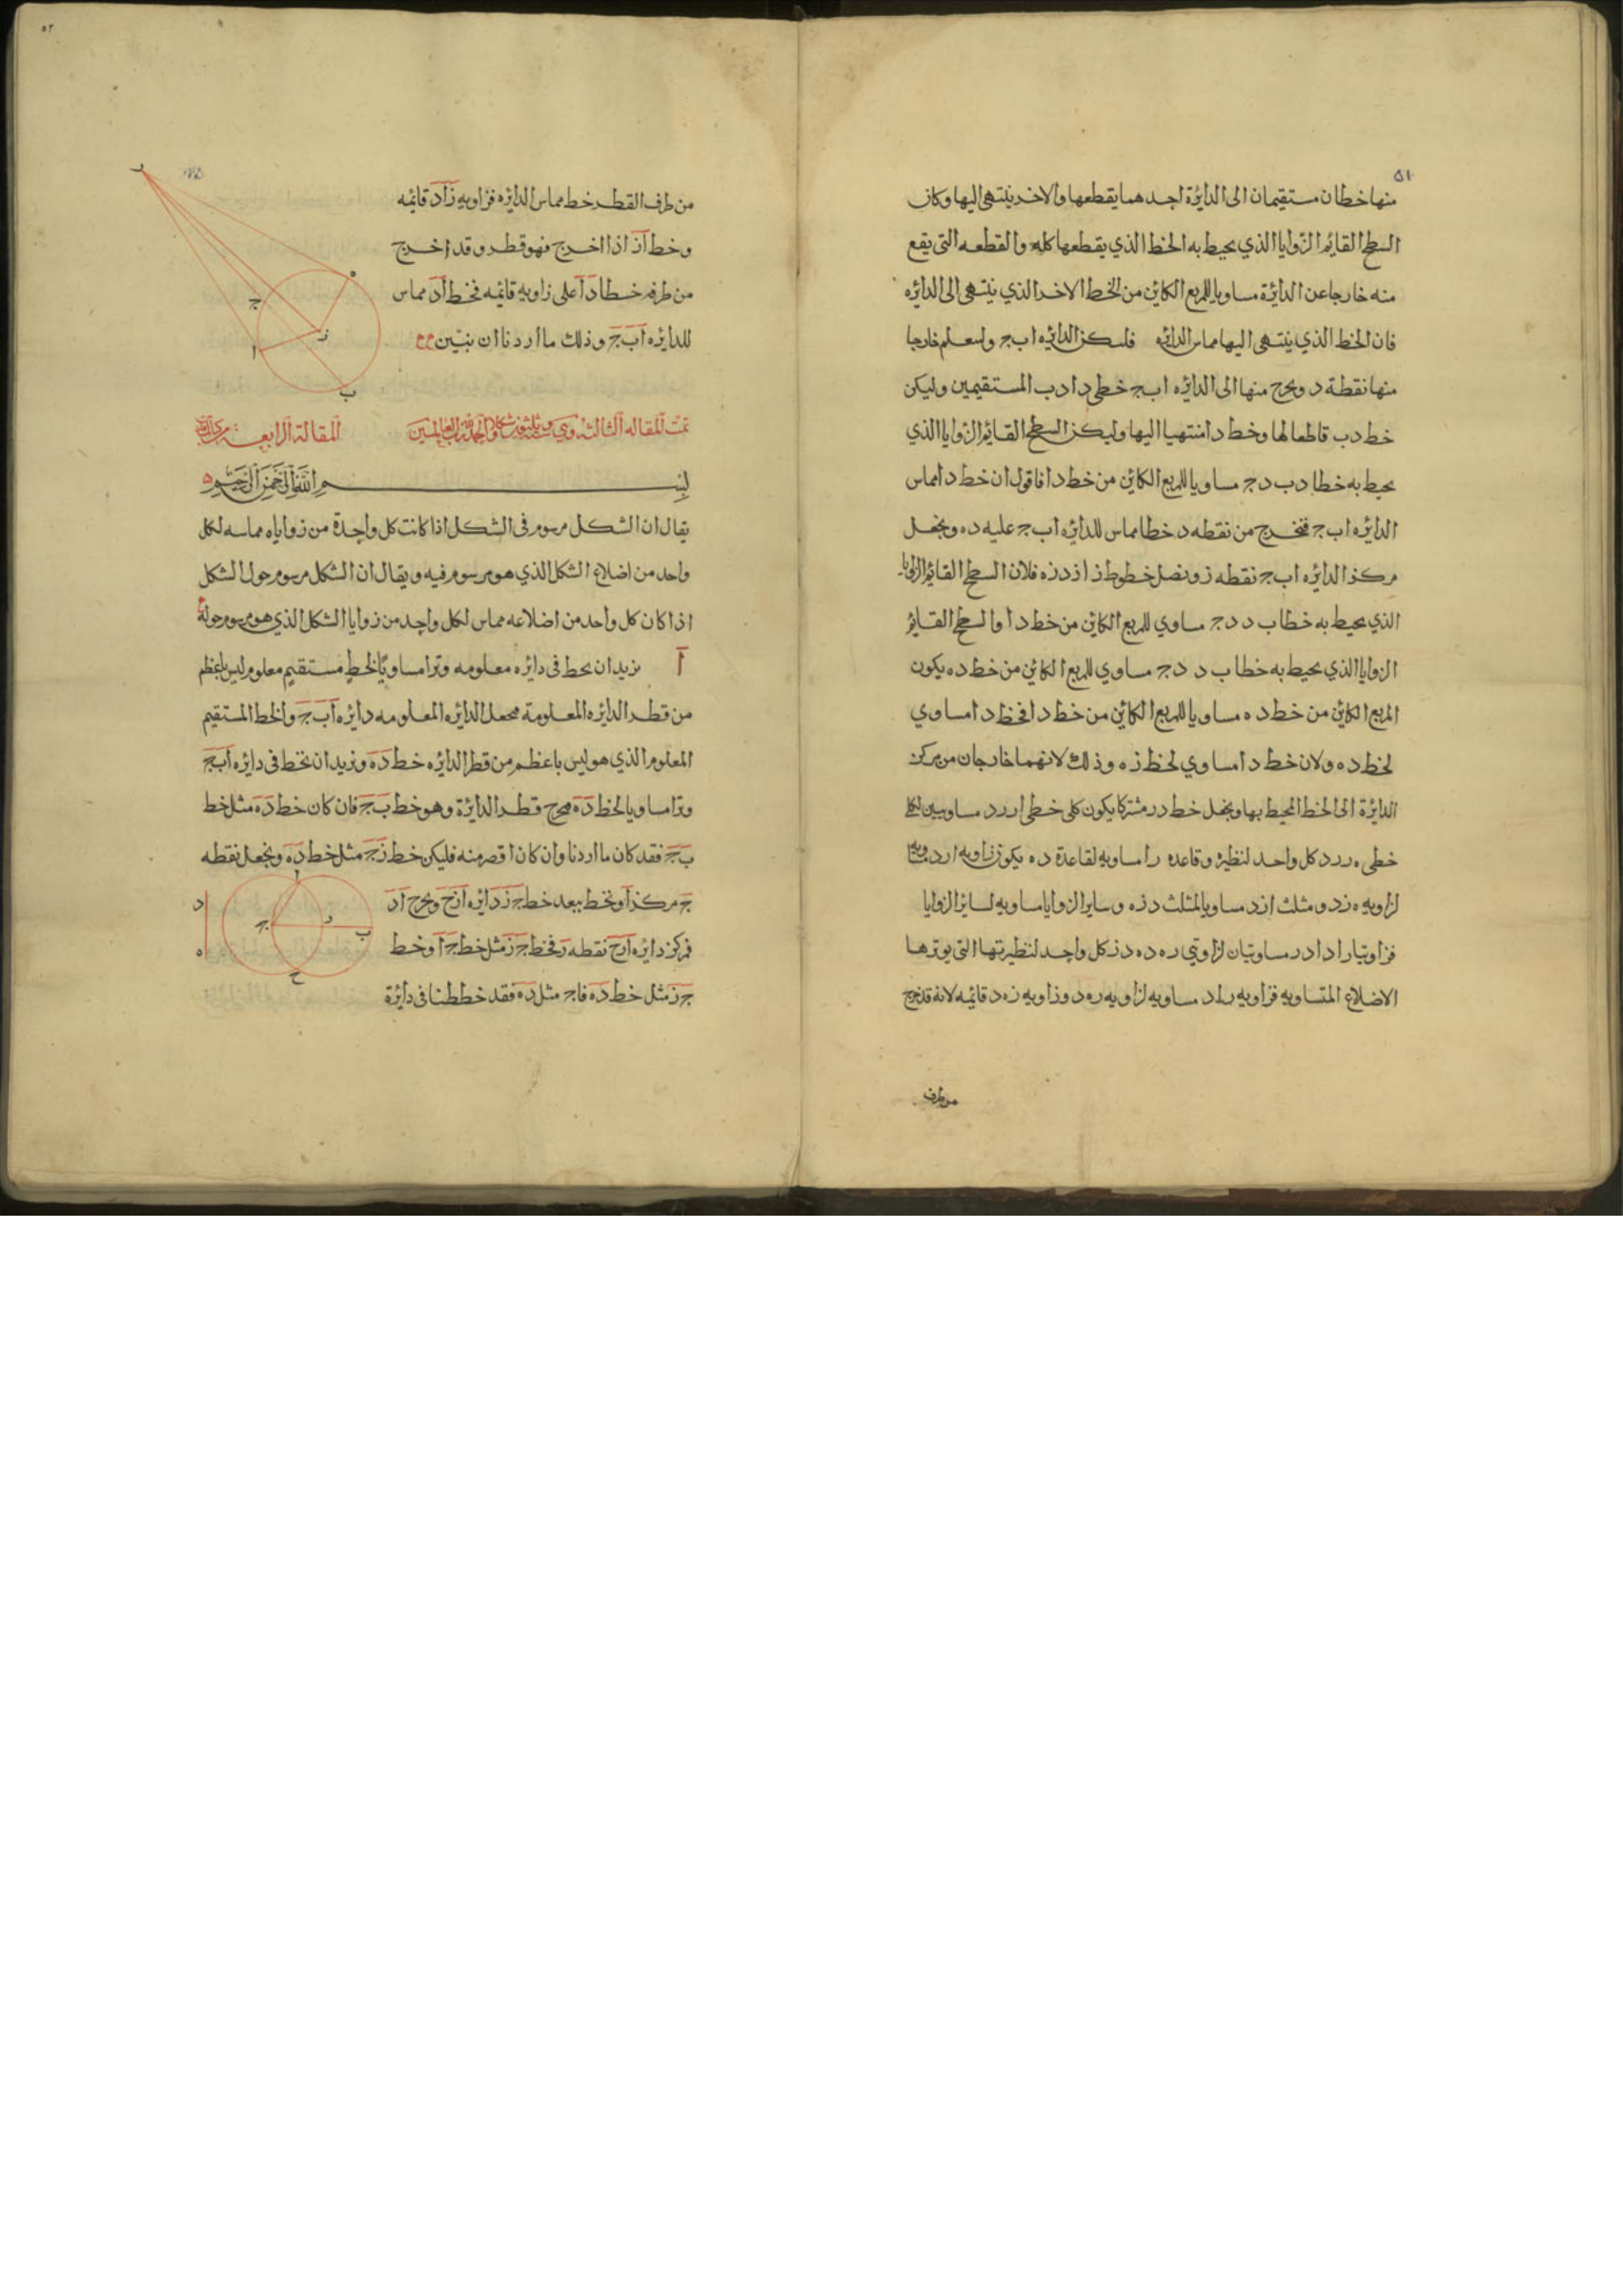 ٥١
منها خطان مستقيمان الى الدائرة احدهما يقطعها والاخر ينتهى اليها وكان
السطح القايم الزوايا الذي يحيط به الخط الذي يقطعها كله والقطعه التى يقع
منه خارجا عن الدائرة مساويا للمربع الكائن من الخط الاخر الذي ينتهى الى الدائره
فان الخط الذي ينتهى اليها مماس الدائره فلـيكن الدائره اب ج ولـتعلم خارجا
منها نقطة د ويخرج منها الى الدائره اب ج خطى د ا د ب المستقيمين وليكن
خط د ب قاطعا لها وخط د ا منتهيا اليها وليكن السطح القايم الزوايا الذي
يحيط به خطا د ب د ج مساويا للمربع الكائن من خط د ا فاقول ان خط د ا مماس
الدائره اب ج فنخرج من نقطه د خطا مماس للدائره اب ج عليه د ه ونجعل
مركز الدائره اب ج نقطه ز ونصل خطوط ز ا ز د ز ه فلان السطح القايم الزوايا
الذي يحيط به خطا ب د د ج مساوي للمربع الكائن من خط د ا والسطح القايم
الزوايا الذي يحيط به خطا ب د د ج مساوي للمربع الكائن من خط د ه يكون
المربع الكائن من خط د ه مساويا للمربع الكائن من خط د ا فخط د ا مساوي
لخط د ه ولان خط د ا مساوي لخط ز ه وذلك لانهما خارجان من مركز
الدائرة الى الخط المحيط بها ونجعل خط د ر مشتركا يكون كلى خطى ا ر ر د مساويين لكلى
خطى ه ر ر د كل واحد لنظيره وقاعده د ا مساويه لقاعدة د ه يكون زاويه ا ر د مساويه
لزاويه ه ز د ومثلث ا ز د مساويا لمثلث د ز ه وساير الزوايا مساويه لساير الزوايا
فزاويتا ر ا د ا د ر مساويتان لزاويتي ر ه د ه د ز كل واحد لنظيرتها التى يوترها
الاضلاع المتساويه فزاويه ر ا د مساويه لزاويه ر ه د وزاويه ز ه د قائمه لانه قد خرج
من طرف
٥٢
من طرف القطر خط مماس الدائره فزاويه ز ا د قائمه
وخط ا ز اذا اخرج فهو قطر وقد اخرج
من طرفه خط ا د ا على زاويه قائمه فخط ا د مماس
للدائره ا ب ج وذلك ما اردنا ان نبين
د
ه
ج
ز
ا
ب
تمت المقاله الثالثه وهي ستة وثلثون شكلا والحمد لله رب العالمين المقالة الرابعه
بسم الله الرحمن الرحيم
يقال ان الشكل مرسوم فى الشكل اذا كانت كل واحدة من زواياه مماسه لكل
واحد من اضلاع الشكل الذي هو مرسوم فيه ويقال ان الشكل مرسوم حول الشكل
اذا كان كل واحد من اضلاعه مماس لكل واحد من زوايا الشكل الذي هو مرسوم حوله
ا نريد ان نخط فى دائره معلومه وترا مساويا لخط مستقيم معلوم ليس باعظم
من قطر الدائره المعلومة فنجعل الدائره المعلومه دائره ا ب ج والخط المستقيم
المعلوم الذي هو ليس باعظم من قطر الدائره خط د ه ونريد ان نخط فى دائره ا ب ج
وترا مساويا لخط د ه فنخرج قطر الدائرة وهو خط ب ج فان كان خط د ه مثل خط
ب ج فقد كان ما اردنا وان كان اقصر منه فليكن خط ز ج مثل خط د ه ونجعل نقطه
ج مركزا ونخط ببعد خط ج ز دائره ا ز ح ونخرج ا د
فمركز دائره ا ر ح نقطه ر فخط ج ز مثل خط ج ا وخط
ج ز مثل خط د ه فاج مثل د ه فقد خططنا فى دائرة
ا
د
ج
ر
ب
ه
ح